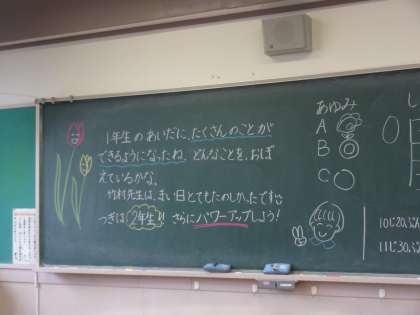 1年生のあいだに、たくさんのことが
できるようになったね。どんなことを、おぼ
えているかな。
竹村先生は、まい日とてもたのしかったです
つぎは2年生!! さらにパワーアップしよう!
あゆみ
A
B
C
10じ20ぷん
11じ30ぷん